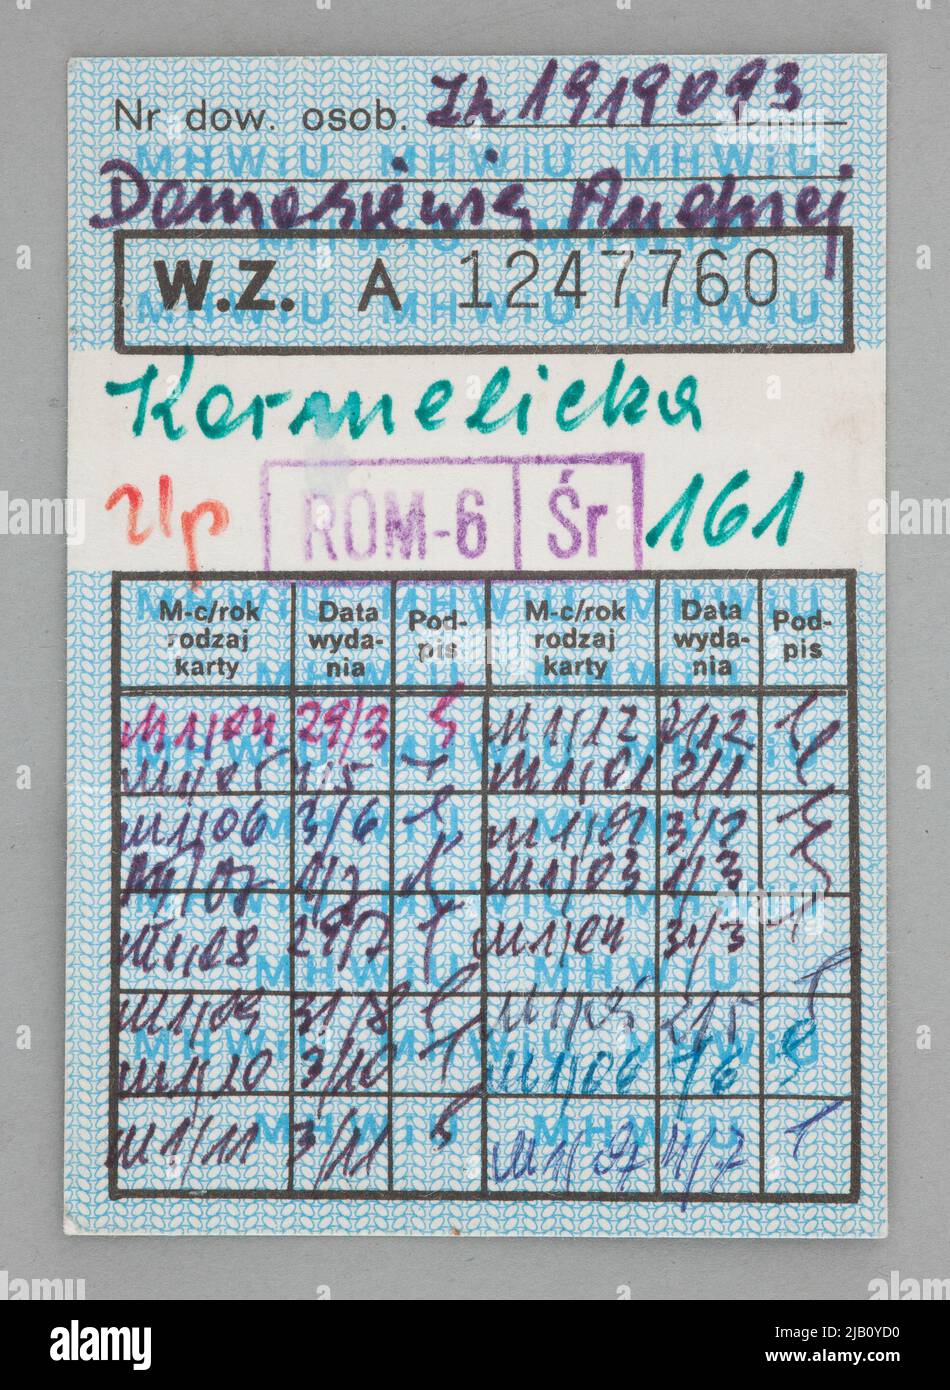 Nr dow. osob. Zh 1919093
MHWiU MHWiU MHWiU
Andrzej
W.Z. A 1247760
MHWiU MHWiU MHWiU
Karmelicka
ROM-6 Śr 161
M-c/rok rodzaj karty Data wyda-nia Pod-pis M-c/rok rodzaj karty Data wyda-nia Pod-pis
M1/04 29/3 M1/12 2/12
M1/05 1/5 M1/01 2/1
M1/06 3/6 M1/02 3/2
M1/07 1/7 M1/03 1/3
M1/08 29/7 M1/04 31/3
M1/09 31/8 M1/05 2/5
M1/10 3/10 M1/06 7/6
M1/11 3/11 M1/07 4/7
alamy
Image ID: 2JB0YD0
www.alamy.com